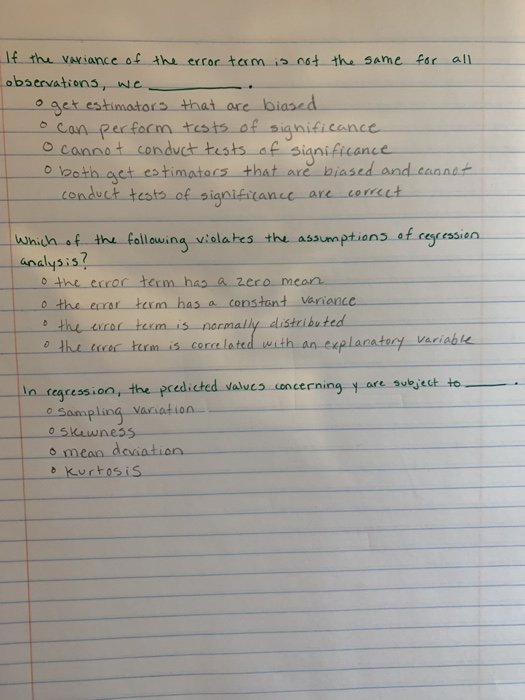 If the variance of the error term is not the same for all
observations, we ______.
o get estimators that are biased
o can perform tests of significance
o cannot conduct tests of significance
o both get estimators that are biased and cannot
conduct tests of significance are correct
Which of the following violates the assumptions of regression
analysis?
o the error term has a zero mean
o the error term has a constant variance
o the error term is normally distributed
o the error term is correlated with an explanatory variable
In regression, the predicted values concerning y are subject to ______.
o sampling variation
o skewness
o mean deviation
o kurtosis